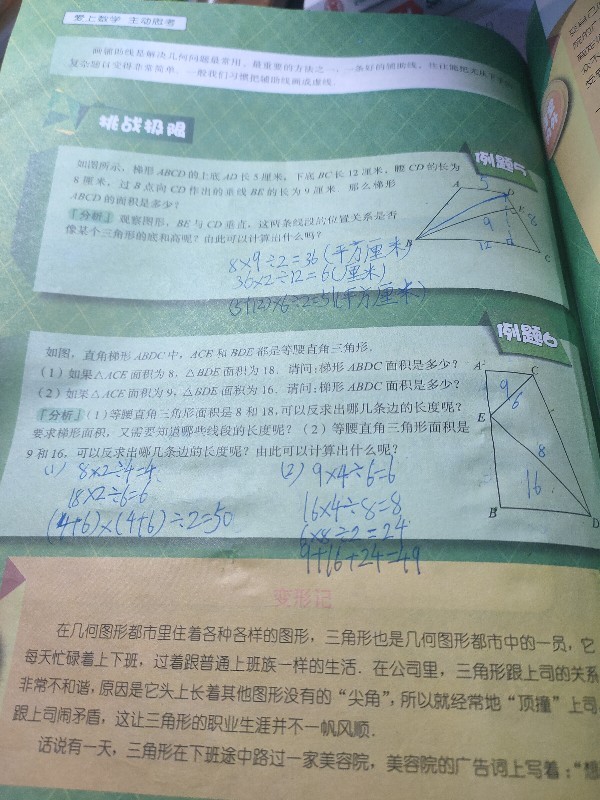 爱上数学 主动思考
画辅助线是解决几何问题最常用、最重要的方法之一,一条好的辅助线,往往能把无从下手的
复杂题目变得非常简单.一般我们习惯把辅助线画成虚线.
挑战极限
例题5
如图所示,梯形ABCD的上底AD长5厘米,下底BC长12厘米,腰CD的长为
8厘米,过B点向CD作出的垂线BE的长为9厘米.那么梯形
ABCD的面积是多少?
「分析」观察图形,BE与CD垂直,这两条线段的位置关系是否
像某个三角形的底和高呢?由此可以计算出什么吗?
A 5 D
E 8
9
B 12 C
8×9÷2=36(平方厘米)
36×2÷12=6(厘米)
(5+12)×6÷2=51(平方厘米)
例题6
如图,直角梯形ABDC中,ACE和BDE都是等腰直角三角形.
(1)如果△ACE面积为8,△BDE面积为18.请问:梯形ABDC面积是多少?
(2)如果△ACE面积为9,△BDE面积为16.请问:梯形ABDC面积是多少?
「分析」(1)等腰直角三角形面积是8和18,可以反求出哪几条边的长度呢?
要求梯形面积,又需要知道哪些线段的长度呢?(2)等腰直角三角形面积是
9和16,可以反求出哪几条边的长度呢?由此可以计算出什么呢?
A C
9
6
E
8
16
B D
(1) 8×2÷4=4
18×2÷6=6
(4+6)×(4+6)÷2=50
(2) 9×4÷6=6
16×4÷8=8
6×8÷2=24
9+16+24=49
变形记
在几何图形都市里住着各种各样的图形,三角形也是几何图形都市中的一员,它
每天忙碌着上下班,过着跟普通上班族一样的生活.在公司里,三角形跟上司的关系
非常不和谐,原因是它头上长着其他图形没有的“尖角”,所以就经常地“顶撞”上司
跟上司闹矛盾,这让三角形的职业生涯并不一帆风顺.
话说有一天,三角形在下班途中路过一家美容院,美容院的广告词上写着:“想